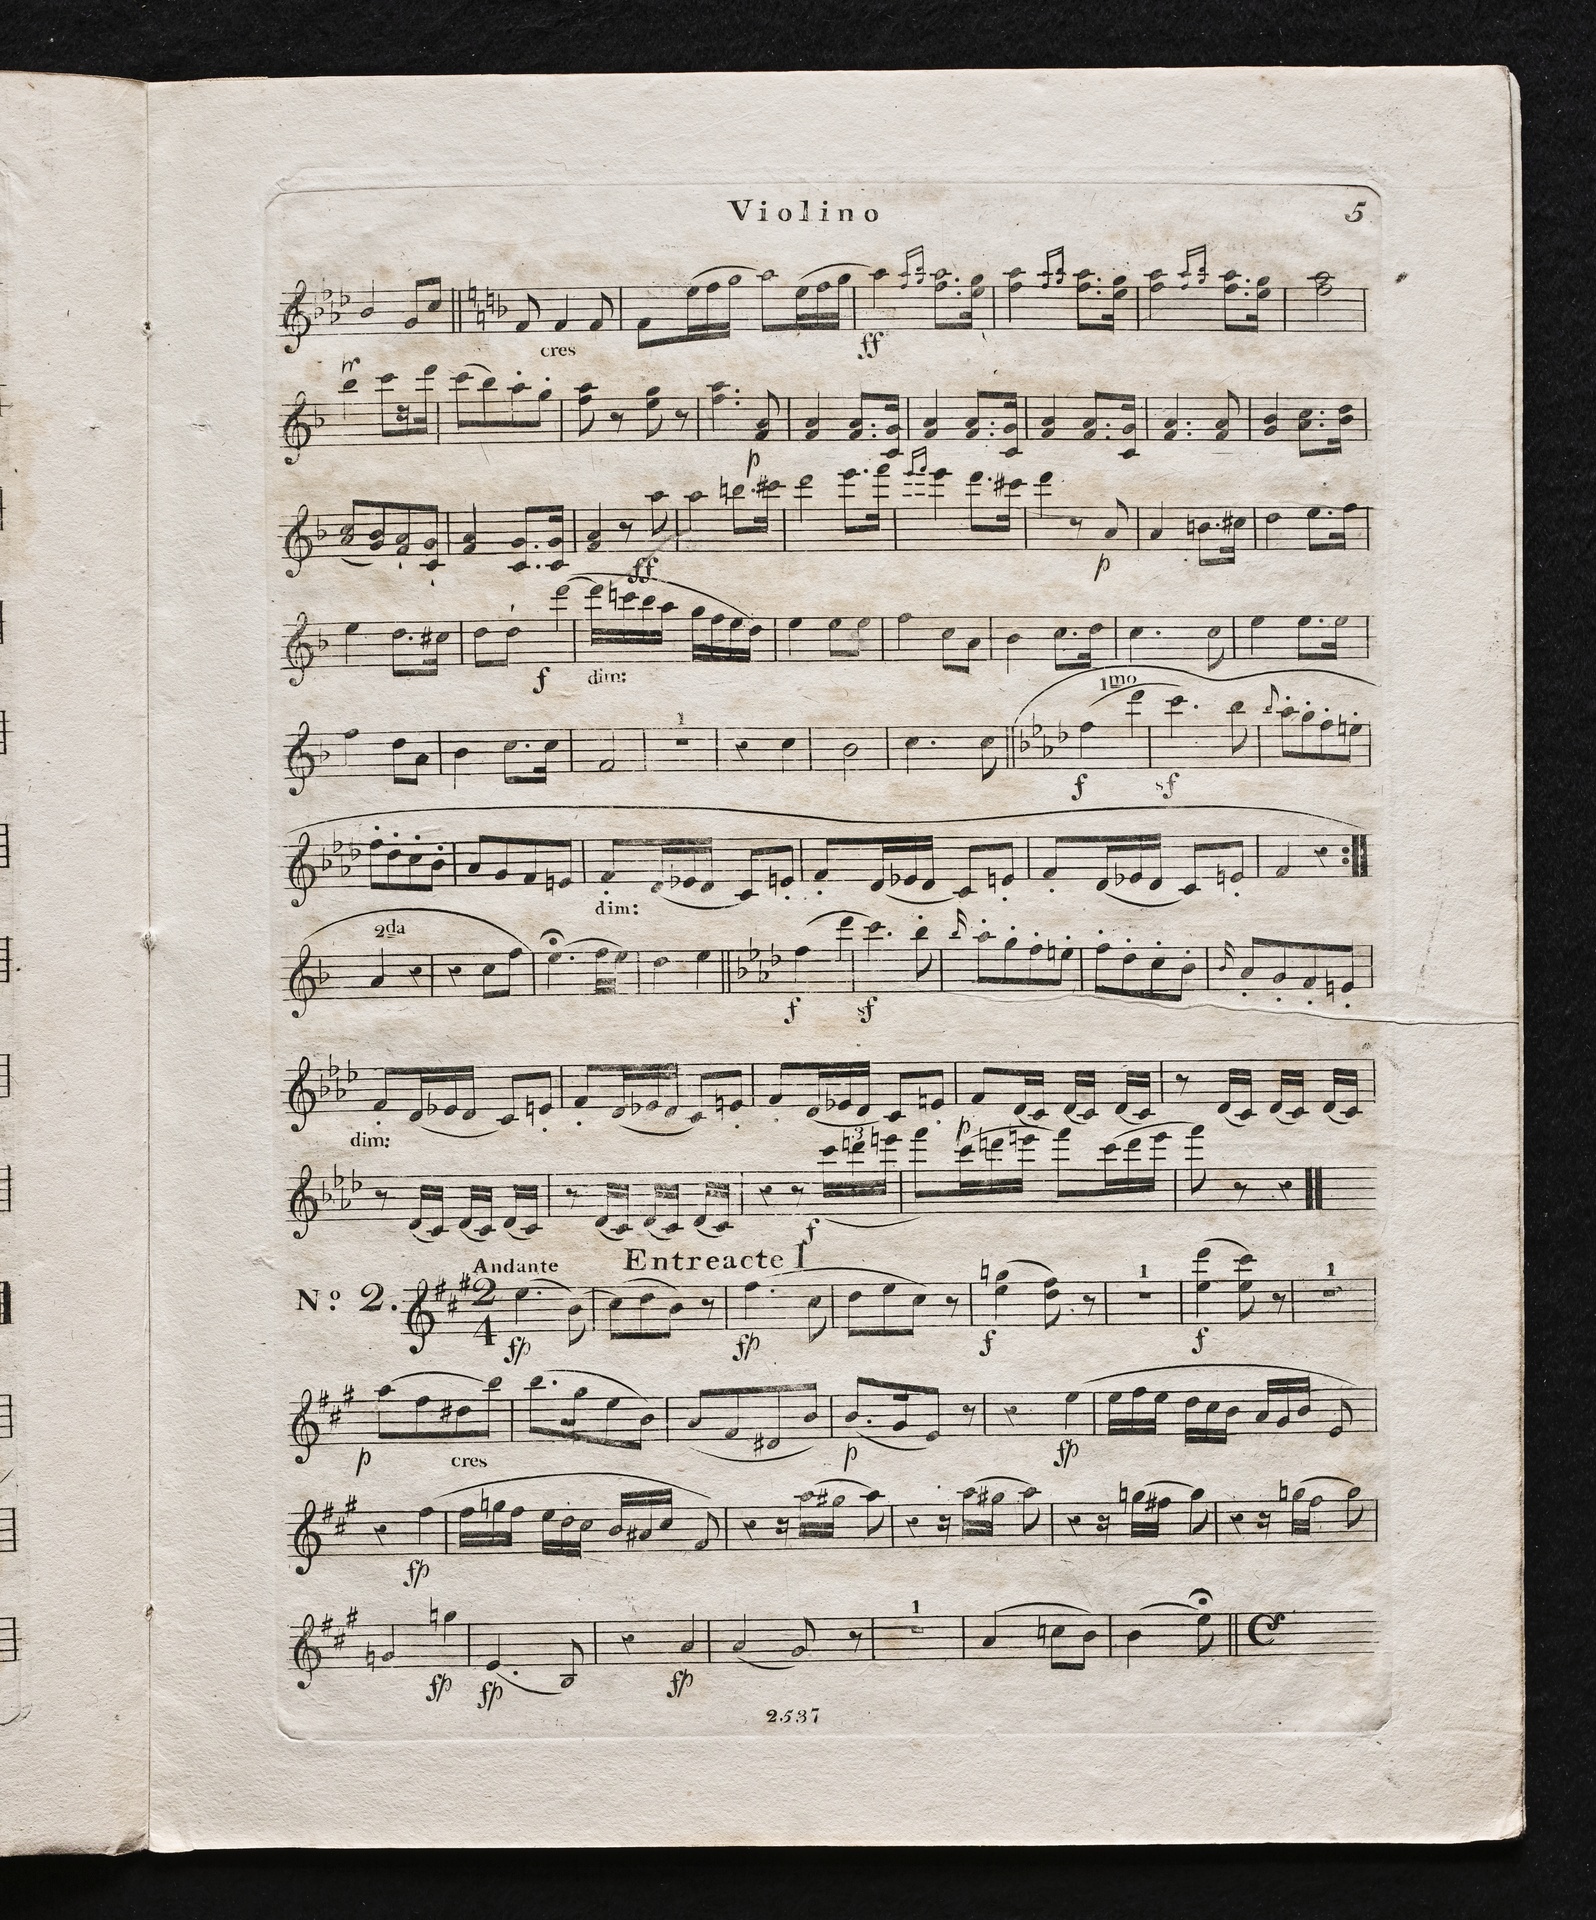 Violino 5
cres ff
tr
p
ff p
f dim:
1 1mo f sf
dim:
2da f sf
dim: p
3 f
Andante Entreacte I
No 2. 2 4 fp fp f 1 f 1
p cres p fp
fp
fp fp fp 1
2537